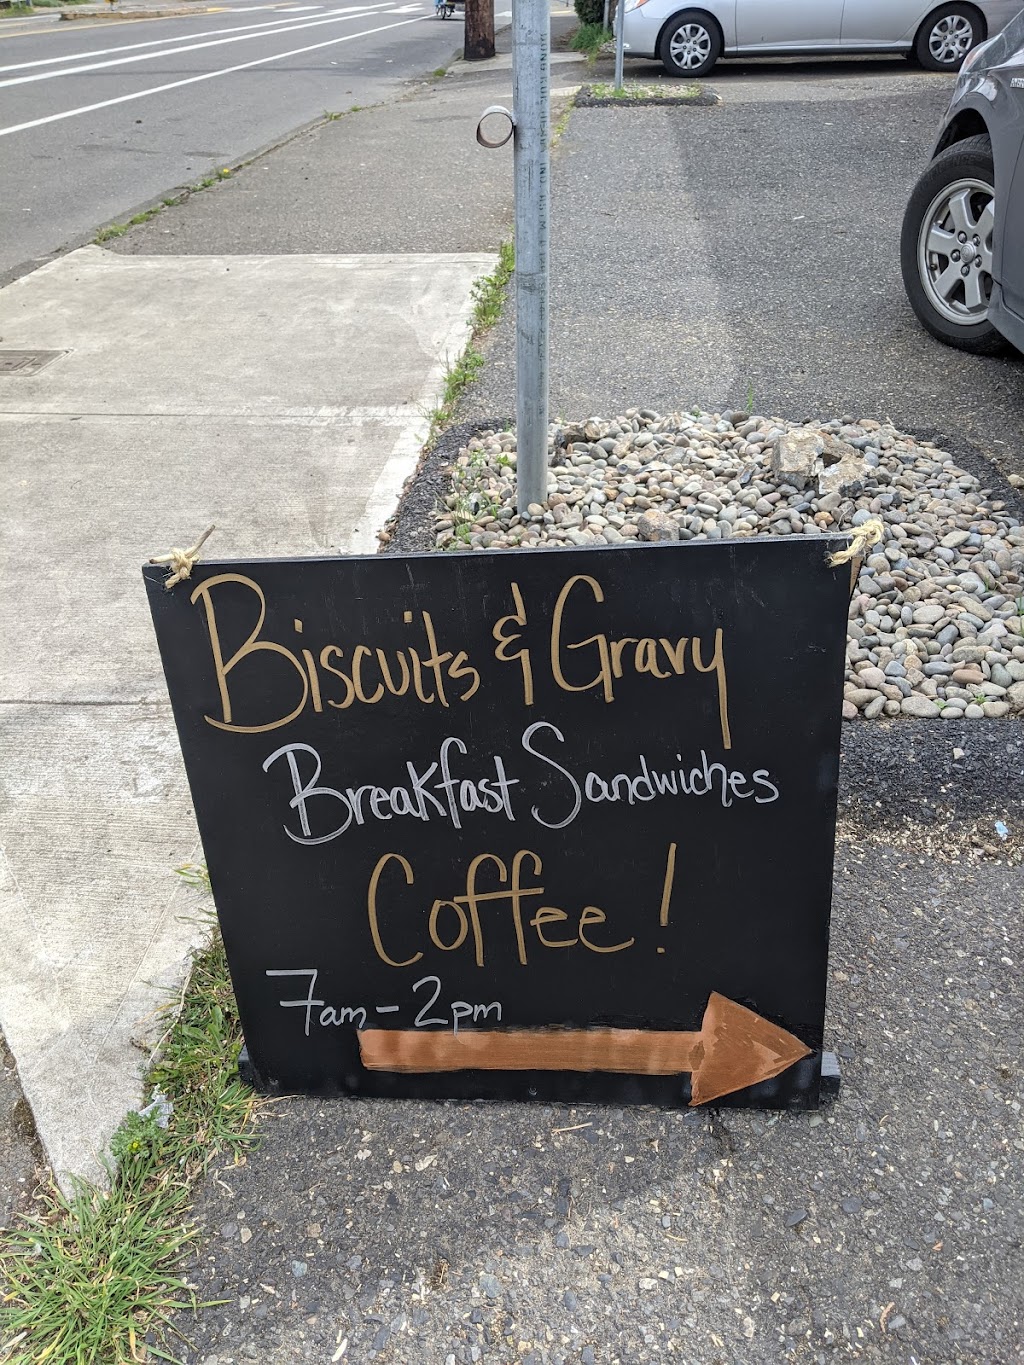 Biscuits & Gravy
Breakfast Sandwiches
Coffee!
7am - 2pm